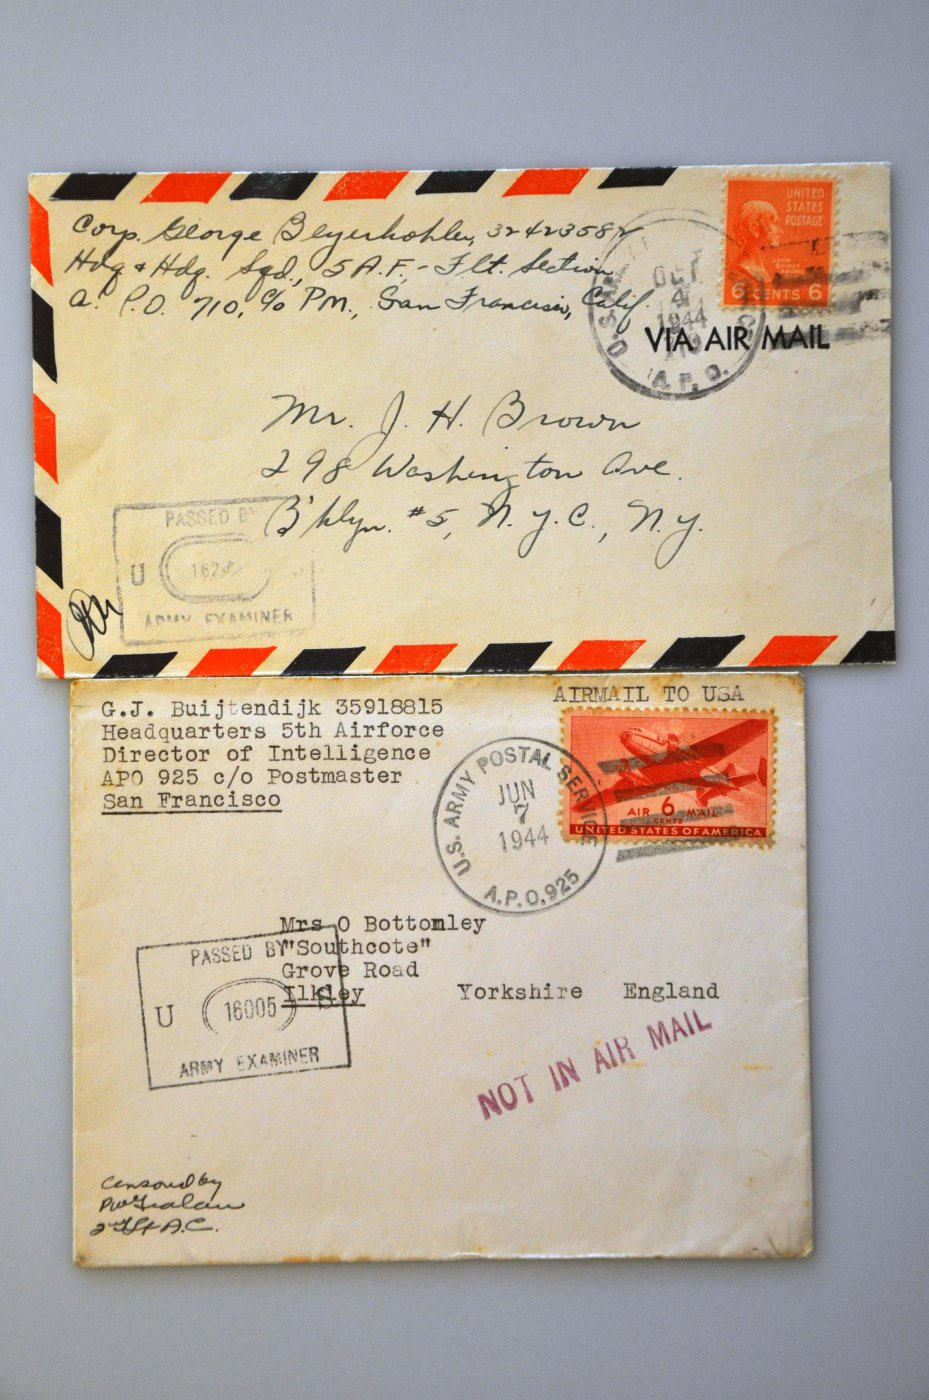 Corp. George Beyerkohler, 32423582
Hdq & Hdq. Sqd., 5 A.F. - Flt. Section
A. P.O. 710, c/o P.M., San Francisco, Calif
UNITED
STATES
POSTAGE
JOHN
QUINCY
ADAMS
6 CENTS 6
OCT
4
1944
A.P.O.
VIA AIR MAIL
Mr. J. H. Brown
298 Washington Ave.
B'klyn. #5, N.Y.C., N.Y.
PASSED BY
U
ARMY EXAMINER
G.J. Buijtendijk 35918815
Headquarters 5th Airforce
Director of Intelligence
APO 925 c/o Postmaster
San Francisco
AIRMAIL TO USA
U.S. ARMY POSTAL SERVICE
JUN
7
1944
A.P.O. 925
AIR 6 MAIL
CENTS
UNITED STATES OF AMERICA
Mrs O Bottomley
"Southcote"
Grove Road
Ilkley Yorkshire England
PASSED BY
U 16005 S
ARMY EXAMINER
NOT IN AIR MAIL
Censored by
2nd Lt A.C.